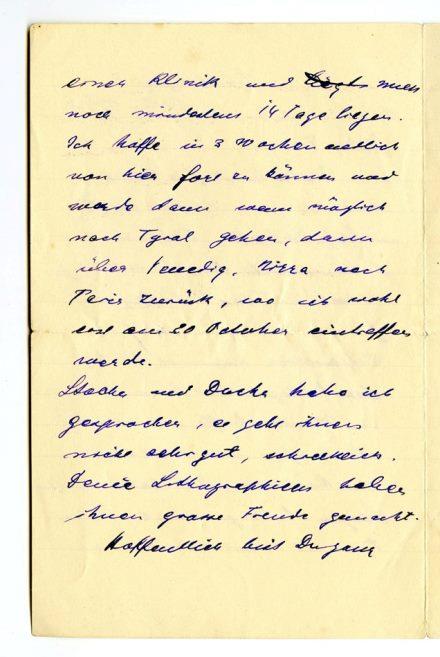 einer Klinik und liegt muss
noch mindestens 14 Tage liegen.
Ich hoffe in 3 Wochen endlich
von hier fort zu können und
werde dann wenn möglich
nach Tyrol gehen, dann
über Venedig, Nizza nach
Paris zurück, wo ich wohl
erst am 20 October eintreffen
werde.
und habe ich
gesprochen, es geht ihnen
nicht sehr gut,
Deine Lithographieen haben
ihnen grosse Freude gemacht.
Hoffentlich bist Du ganz